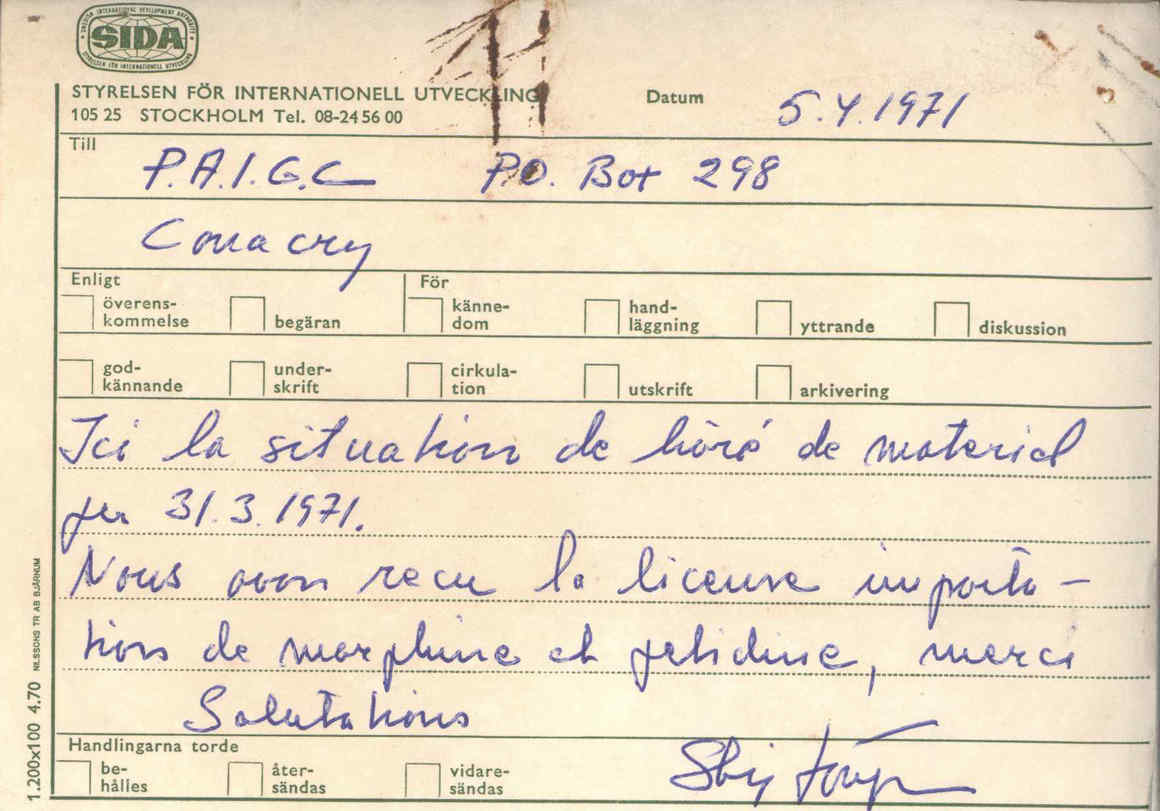 SWEDISH INTERNATIONAL DEVELOPMENT AUTHORITY
SIDA
STYRELSEN FÖR INTERNATIONELL UTVECKLING
STYRELSEN FÖR INTERNATIONELL UTVECKLING
105 25 STOCKHOLM Tel. 08-24 56 00
Datum 5.4.1971
Till
P.A.I.G.C P.O. Box 298
Conacry
Enligt För
överens-
kommelse
begäran
känne-
dom
hand-
läggning
yttrande
diskussion
god-
kännande
under-
skrift
cirkula-
tion
utskrift
arkivering
Ici la situation de livré de material
per 31.3.1971.
Nous avon recu la license importa-
tion de morphine et petidine, merci
Salutations
Handlingarna torde
be-
hålles
åter-
sändas
vidare-
sändas
1.200x100 4.70 NILSSONS TR AB BJÄRNUM